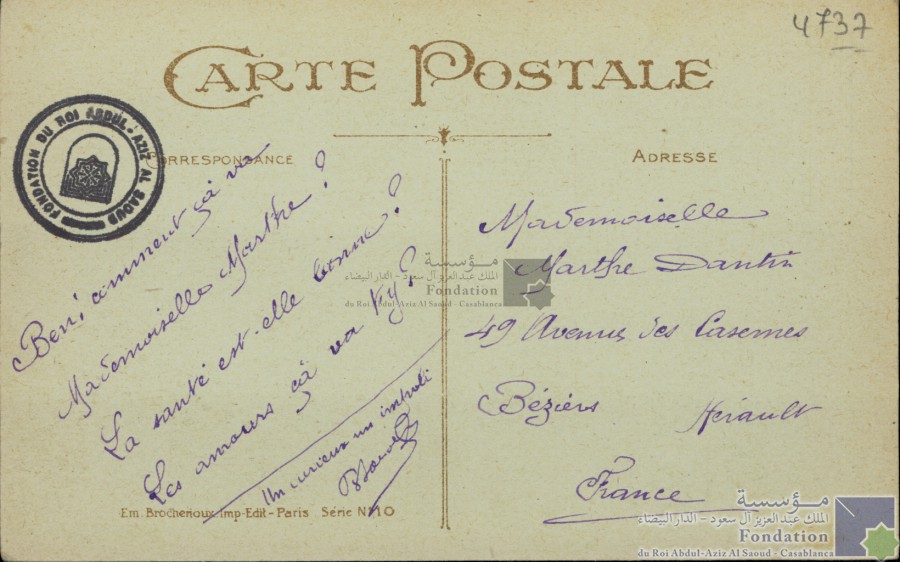 4737
CARTE POSTALE
FONDATION DU ROI ABDUL-AZIZ AL SAOUD
CORRESPONDANCE
ADRESSE
comment çà va
Mademoiselle Marthe?
La santé est-elle bonne?
Les amours çà va-t-y?
Un curieux un
Mademoiselle
Marthe Dantin
49 Avenue des Casernes
Béziers Hérault
France
Em. Brocherioux Imp-Edit-Paris Série No 10
مؤسسة
الملك عبد العزيز آل سعود - الدار البيضاء
Fondation
du Roi Abdul-Aziz Al Saoud - Casablanca
مؤسسة
الملك عبد العزيز آل سعود - الدار البيضاء
Fondation
du Roi Abdul-Aziz Al Saoud - Casablanca